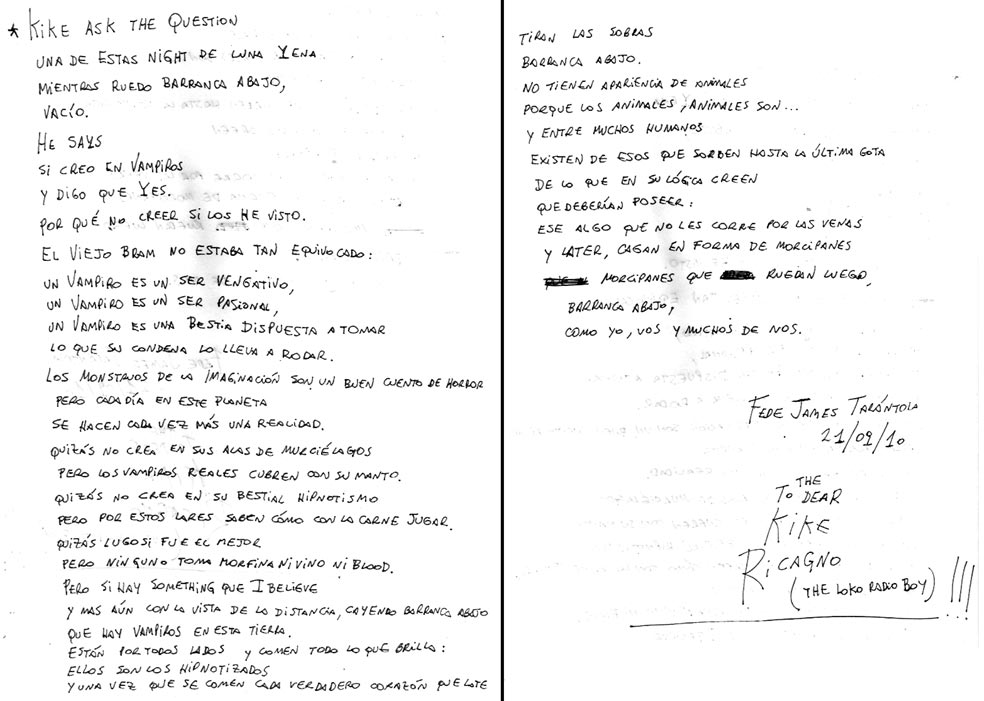 * KIKE ASK THE QUESTION
UNA DE ESTAS NIGHT DE LUNA YENA
MIENTRAS RUEDO BARRANCA ABAJO,
VACÍO.
HE SAYS
SI CREO EN VAMPIROS
Y DIGO QUE YES.
POR QUÉ NO CREER SI LOS HE VISTO.
EL VIEJO BRAM NO ESTABA TAN EQUIVOCADO:
UN VAMPIRO ES UN SER VENGATIVO,
UN VAMPIRO ES UN SER PASIONAL,
UN VAMPIRO ES UNA BESTIA DISPUESTA A TOMAR
LO QUE SU CONDENA LO LLEVA A RODAR.
LOS MONSTRUOS DE LA IMAGINACIÓN SON UN BUEN CUENTO DE HORROR
PERO CADA DÍA EN ESTE PLANETA
SE HACEN CADA VEZ MÁS UNA REALIDAD.
QUIZÁS NO CREA EN SUS ALAS DE MURCIÉLAGOS
PERO LOS VAMPIROS REALES CUBREN CON SU MANTO.
QUIZÁS NO CREA EN SU BESTIAL HIPNOTISMO
PERO POR ESTOS LARES SABEN CÓMO CON LA CARNE JUGAR.
QUIZÁS LUGOSI FUE EL MEJOR
PERO NINGUNO TOMA MORFINA NI VINO NI BLOOD.
PERO SI HAY SOMETHING QUE I BELIEVE
Y MAS AÚN CON LA VISTA DE LA DISTANCIA, CAYENDO BARRANCA ABAJO
QUE HAY VAMPIROS EN ESTA TIERRA.
ESTÁN POR TODOS LADOS Y COMEN TODO LO QUE BRILLA:
ELLOS SON LOS HIPNOTIZADOS
Y UNA VEZ QUE SE COMEN CADA VERDADERO CORAZÓN QUE LATE
TIRAN LAS SOBRAS
BARRANCA ABAJO.
NO TIENEN APARIENCIA DE ANIMALES
PORQUE LOS ANIMALES, ANIMALES SON...
Y ENTRE MUCHOS HUMANOS
EXISTEN DE ESOS QUE SORBEN HASTA LA ÚLTIMA GOTA
DE LO QUE EN SU LÓGICA CREEN
QUE DEBERÍAN POSEER:
ESE ALGO QUE NO LES CORRE POR LAS VENAS
Y LATER, CAGAN EN FORMA DE MORCIPANES
MORCIPANES QUE RUEDAN LUEGO,
BARRANCA ABAJO,
COMO YO, VOS Y MUCHOS DE NOS.
FEDE JAMES TARÁNTOLA
21/09/10
TO THE DEAR
KIKE
RICAGNO
(THE LOKO RADIO BOY) !!!